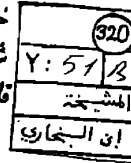 320
Y: 51 B
المشيخة
ابن البخاري